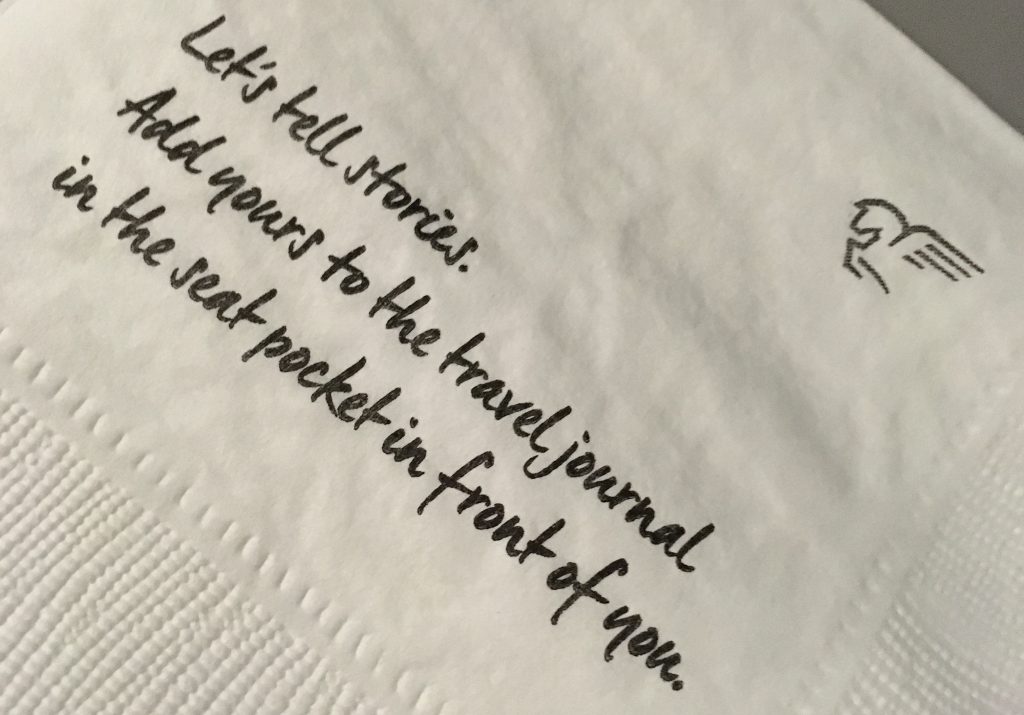 Let's tell stories.
Add yours to the travel journal
in the seat pocket in front of you.